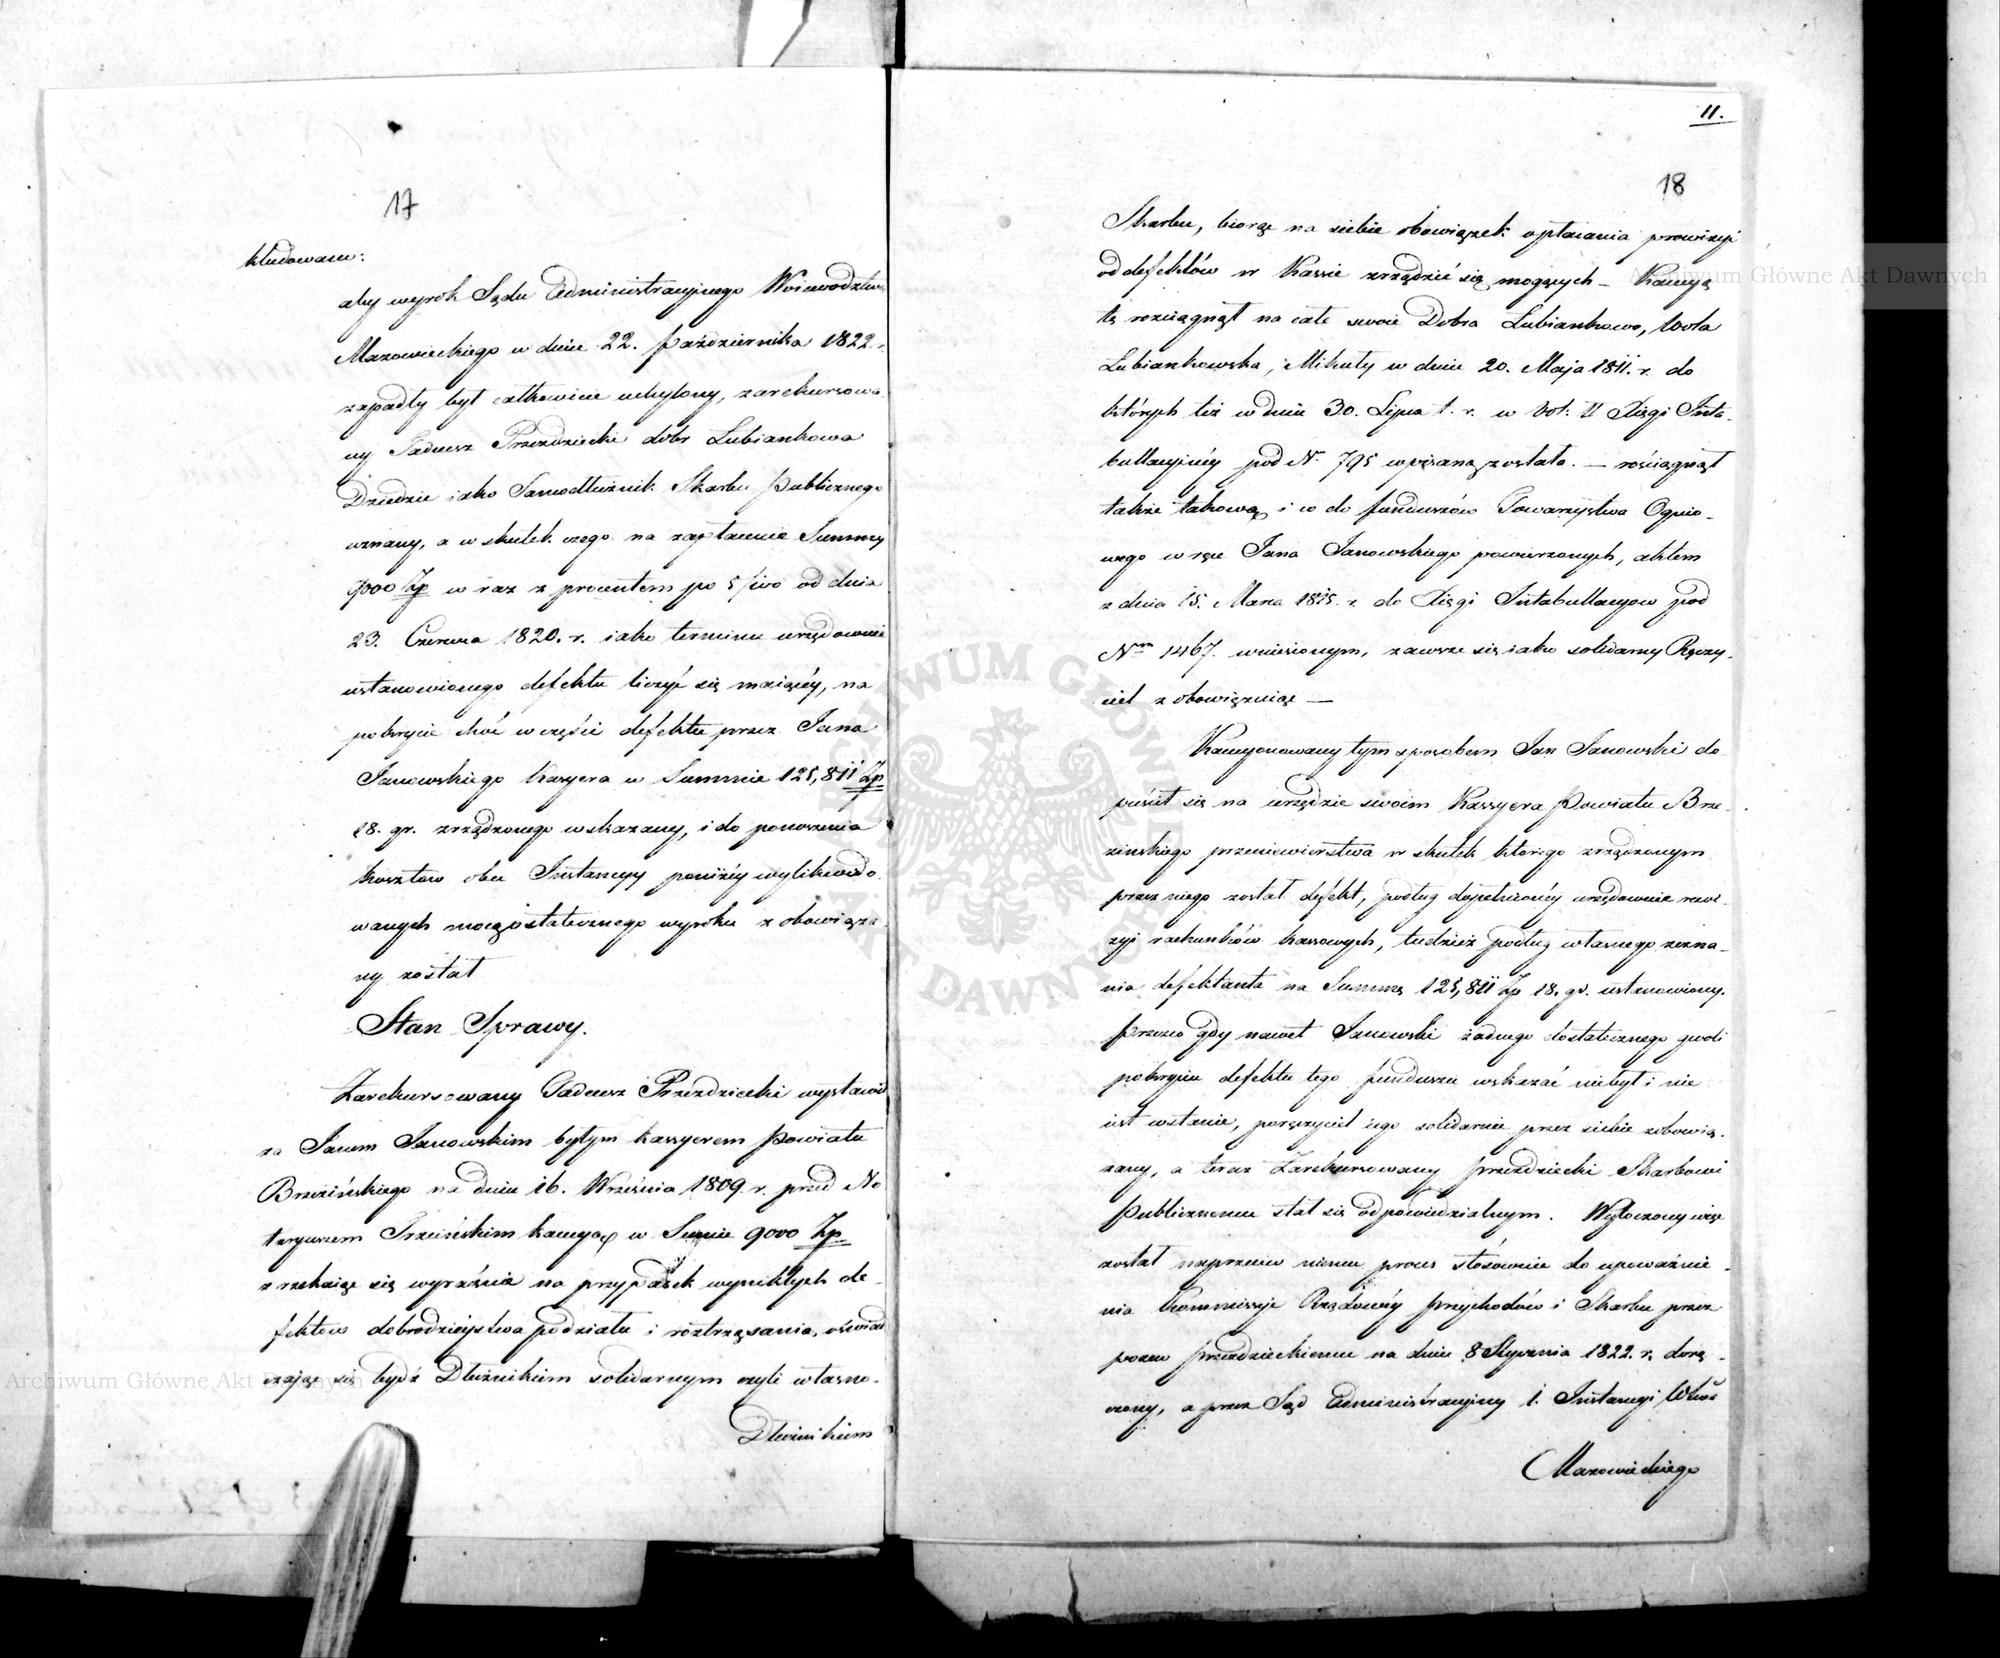 17
kludowano:
aby wyrok Sądu Administracyjnego Woiewodztwa
Mazowieckiego w dniu 22. Października 1822. r.
zapadły był całkowicie uchylony, zarekursowa
ny Tadeusz Przezdziecki dobr Lubiankowa
Dziedzic iako Samodłużnik Skarbu Publicznego
uznany, a w skutek czego na zapłacenie Summy
9000 Zp w raz z procentem po 5/100 od dnia
23. Czerwca 1820. r. iako terminu urzędownie
ustanowionego defektu liczyć się maiącéy, na
pokrycie choć w części defektu przez Jana
Janowskiego Kassyera w Summie 125,811 Zp
18. gr. zrządzonego wskazany, i do ponoszenia
Kosztow obu Instancyy poniżéy wylikwido
wanych mocą ostatecznego wyroku zobowiąza
ny został
Stan Sprawy.
Zarekursowany Tadeusz Przezdziecki wystawił
za Janem Janowskim byłym Kassyerem Powiatu
Brzezińskiego na dniu 16. Września 1809. r. przed No
taryuszem kaucyą w Sumie 9000 Zp
zrzekaiąc się wyraźnie na przypadek wynikłych de-
fektow dobrodzieystwa podziału i roztrząsania, oświad
czając się bydź Dłużnikiem solidarnym czyli własno-
Dłużnikiem
11.
18
Skarbu, biorąc na siebie obowiązek opłacania prowizyi
od defektów w Kassie zrządzić się mogących – Kaucyą
tę rozciągnął na całe swoie Dobra Lubiankowo, Wola
Lubiankowska, i Mikuły w dniu 20. Maja 1811. r. do
których też w dniu 30. Lipca t. r. w Vol: II Xięgi Inta-
bullacyinéy pod N. 795 wpisaną została. – rościągnął
także takową i co do funduszów Towarzystwa Ognio-
wego w ręce Jana Janowskiego powierzonych, aktem
z dnia 15. Marca 1815. r. do Xięgi Intabullacyow pod
Nrm 1467. wniesionym, zawsze się iako solidarny Ręczy-
ciel zobowiązuiąc –
Kaucyonowany tym sposobem Jan Janowski do
puścił się na urzędzie swoim Kassyera Powiatu Brze-
zinskiego przeniewierstwa w skutek którego zrządzonym
przez niego został defekt, podług dopełnionéy urzędownie rewi-
zyi rachunków kassowych, tudzież podług własnego zezna-
nia defektanta na Summę 125,811 Zp 18. gr. ustanowiony.
Przeco gdy nawet Janowski żadnego dostatecznego gwoli
pokryciu defektu tego funduszu wskazać niebył i nie
iest wstanie, poręczyciel iego solidarnie przez siebie zobowią-
zany, a teraz Zarekursowany Przezdziecki Skarbowi
Publicznemu stał się odpowiedzialnym. Wytoczony więc
został naprzeciw niemu proces stósownie do upoważnie-
nia Kommissyi Rządowéy Przychodów i Skarbu przez
pozew Przezdzieckiemu na dniu 8 Stycznia 1822. r. dorę-
czony, a przez Sąd Administracyiny I. Instancyi Wdztwa
Mazowieckiego